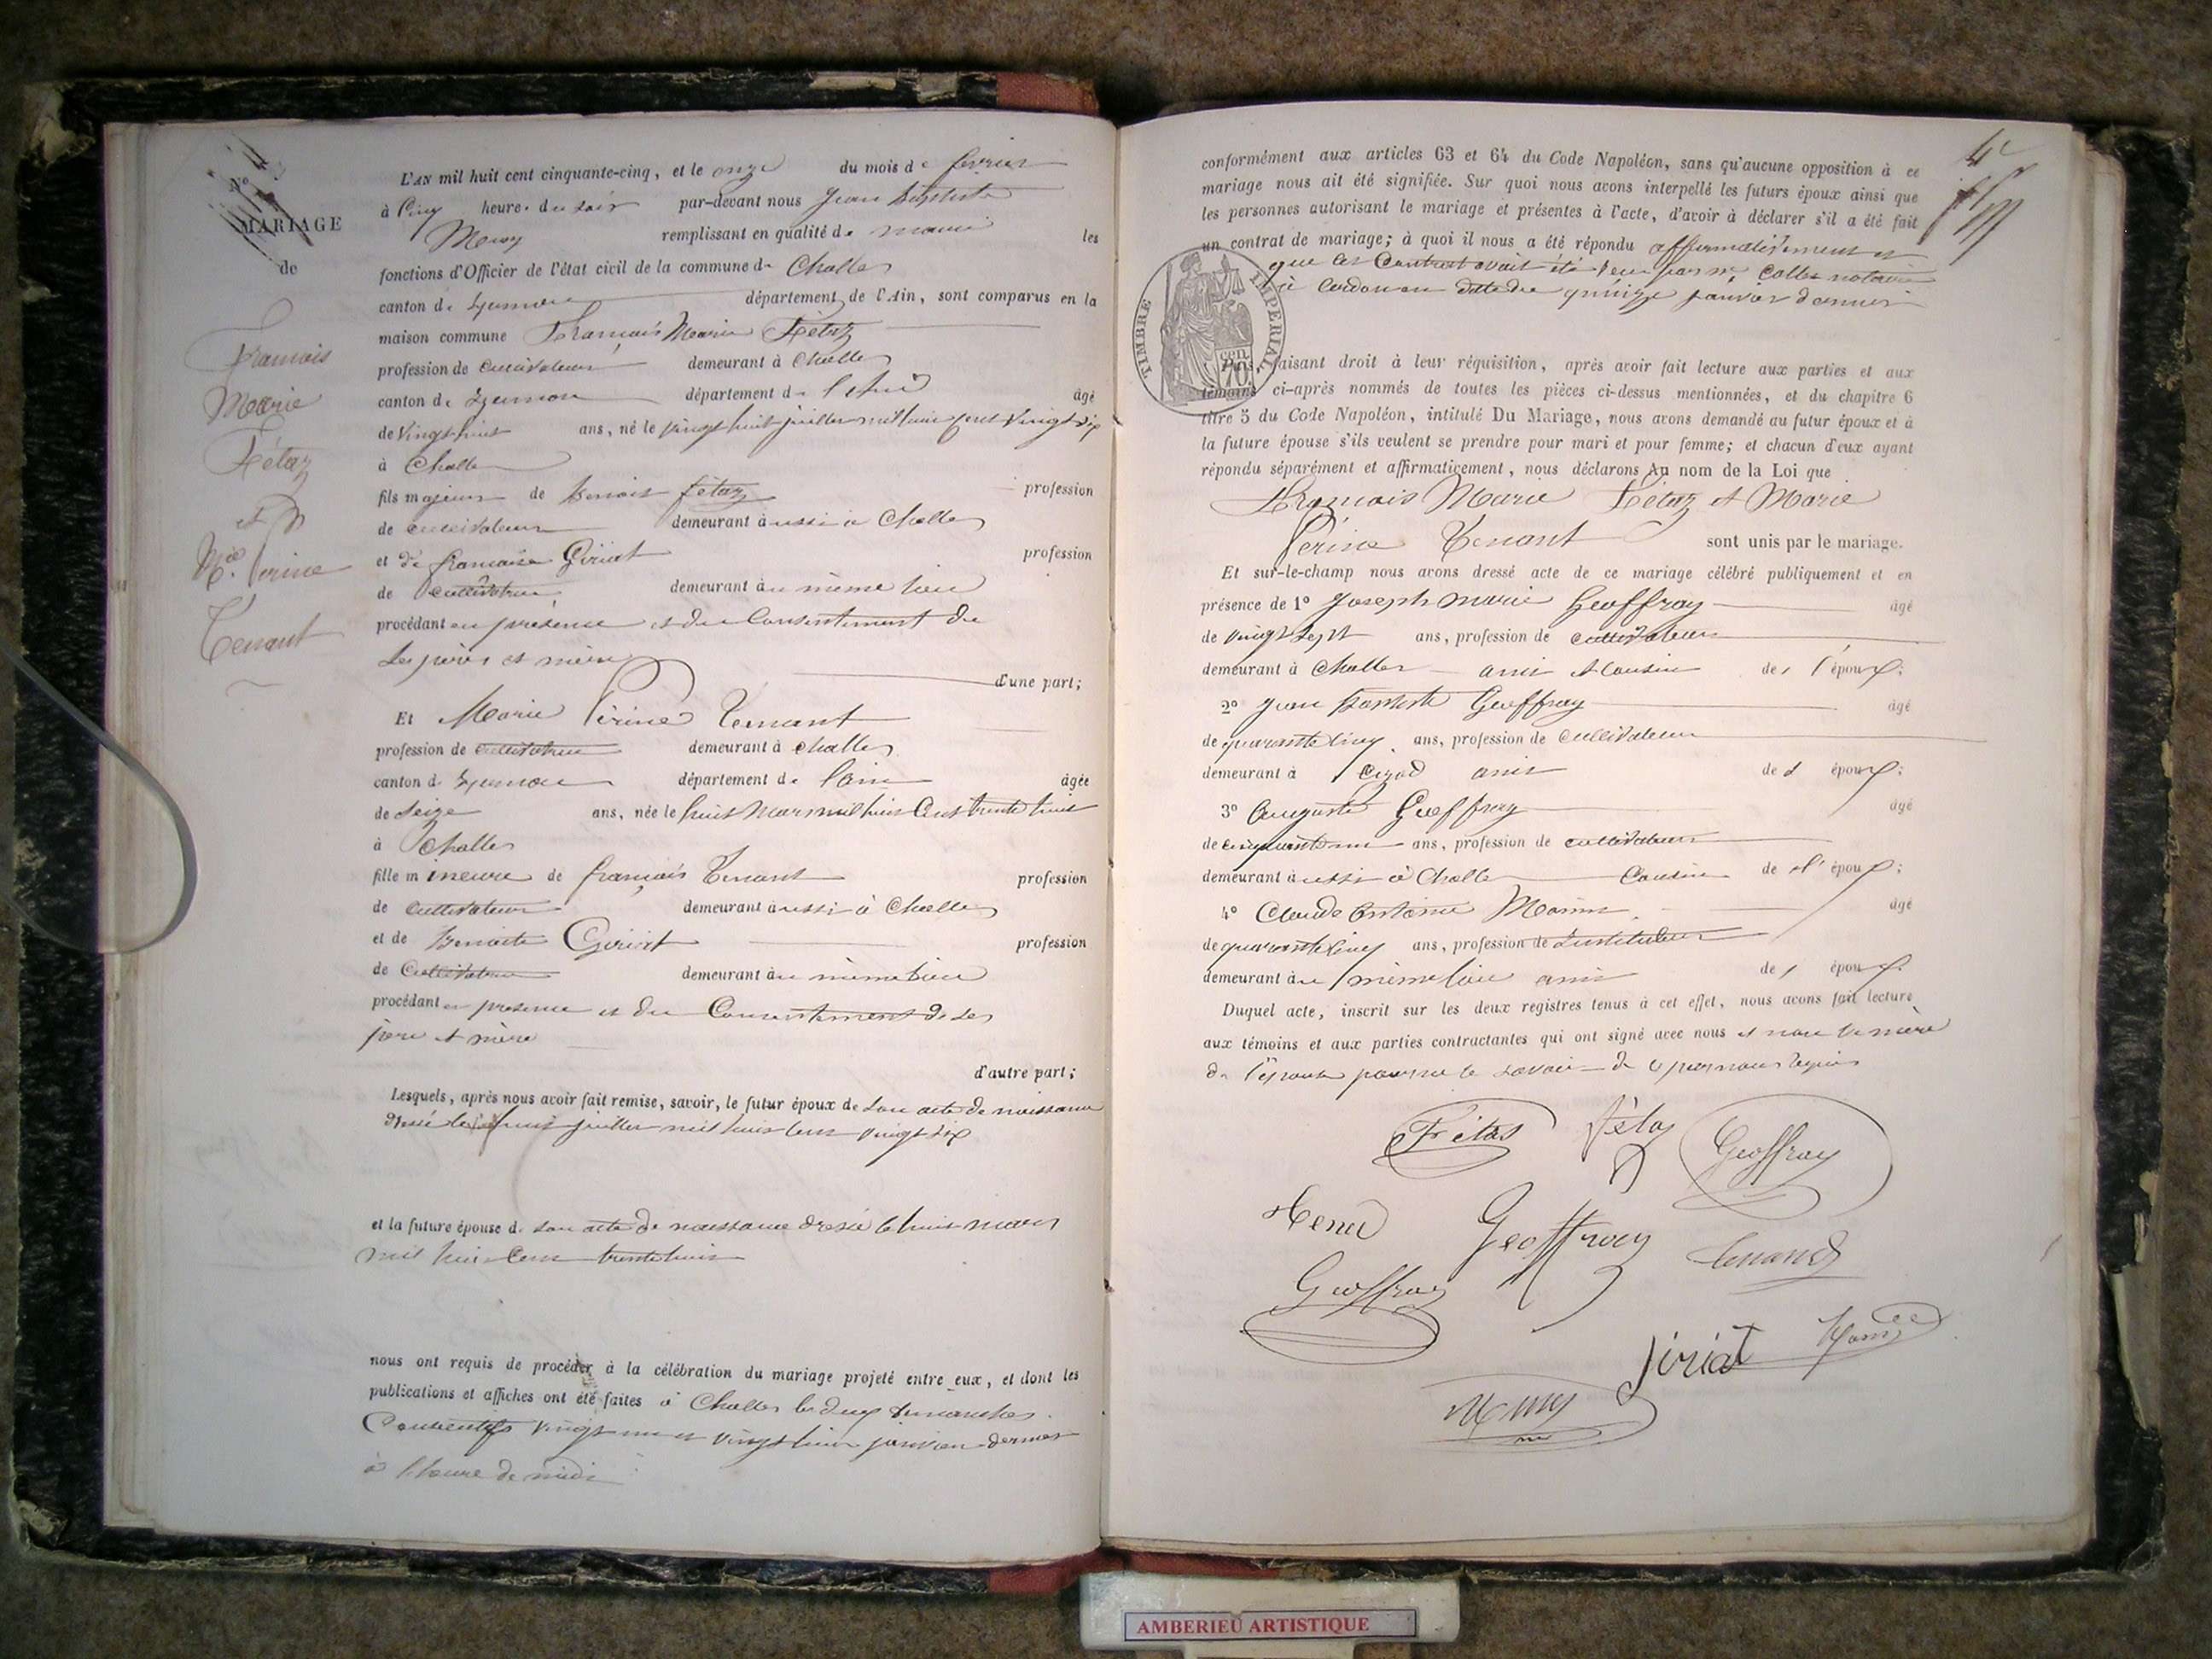 No 4
MARIAGE
de
François
Marie
Fétaz
et
Mie Perine
Tenant
L'AN mil huit cent cinquante-cinq, et le onze du mois de fevrier
à Cinq heures du soir par-devant nous Jean Baptiste
remplissant en qualité de maire les
fonctions d'Officier de l'état civil de la commune de Challes
canton de département de l'Ain, sont comparus en la
maison commune François Marie Fétaz
profession de cultivateur demeurant à Challes
canton de département de l'Ain âgé
de Vingt huit ans, né le vingt huit juillet mil huit cent vingt six
à Challes
fils majeur de Benoit fétaz profession
de cultivateur demeurant aussi à Challes
et de francoise Giriat profession
de cultivatrice demeurant au même lieu
procédant en présence et du Consentement de
ses père et mère
d'une part;
Et Marie Périne Tenant
profession de cultivatrice demeurant à Challes
canton de département de l'ain âgée
de Seize ans, née le huit Mars mil huit Cent trente huit
à Challes
fille mineure de françois Tenant profession
de Cultivateur demeurant aussi à Challes
et de Benoite Giriat profession
de Cultivatrice demeurant au même lieu
procédant en présence et du Consentement de ses
père et mère
d'autre part;
Lesquels, après nous avoir fait remise, savoir, le futur époux de son acte de naissance
juillet mil huit cent vingt six
et la future épouse de son acte de naissance dressé le huit mars
mil huit Cent trente huit
nous ont requis de procéder à la célébration du mariage projeté entre eux, et dont les
publications et affiches ont été faites à Challes les deux dimanches
Consecutifs vingt un et vingt huit janvier dernier
à l'heure de midi
4e
conformément aux articles 63 et 64 du Code Napoléon, sans qu'aucune opposition à ce
mariage nous ait été signifiée. Sur quoi nous avons interpellé les futurs époux ainsi que
les personnes autorisant le mariage et présentes à l'acte, d'avoir à déclarer s'il a été fait
un contrat de mariage; à quoi il nous a été répondu affirmativement et
que Cet Contrat avait été reçu par me Collet notaire
à Cerdon en datte du quinze janvier dernier
TIMBRE IMPERIAL
70 cen.
Puis, faisant droit à leur réquisition, après avoir fait lecture aux parties et aux
témoins ci-après nommés de toutes les pièces ci-dessus mentionnées, et du chapitre 6
titre 5 du Code Napoléon, intitulé Du Mariage, nous avons demandé au futur époux et à
la future épouse s'ils veulent se prendre pour mari et pour femme; et chacun d'eux ayant
répondu séparément et affirmativement, nous déclarons Au nom de la Loi que
François Marie Fétaz et Marie
Périne Tenant sont unis par le mariage.
Et sur-le-champ nous avons dressé acte de ce mariage célébré publiquement et en
présence de 1º Joseph marie Geoffray âgé
de vingt sept ans, profession de cultivateur
demeurant à Challes ami et Cousin de l'époux;
2º Jean Baptiste Geoffray âgé
de quarante cinq ans, profession de Cultivateur
demeurant à ami de époux;
3º Auguste Geoffray âgé
de cinquante un ans, profession de cultivateur
demeurant aussi à Challes Cousin de l'époux;
4º Claude Antoine âgé
de quarante cinq ans, profession de Instituteur
demeurant au même lieu ami de époux.
Duquel acte, inscrit sur les deux registres tenus à cet effet, nous avons fait lecture
aux témoins et aux parties contractantes qui ont signé avec nous et non la mère
de l'épouse pour ne le savoir de ce par nous requis
Fétas
Fétaz
Geoffray
Geoffray
Tenand
Geoffray
Jiriat
AMBERIEU ARTISTIQUE